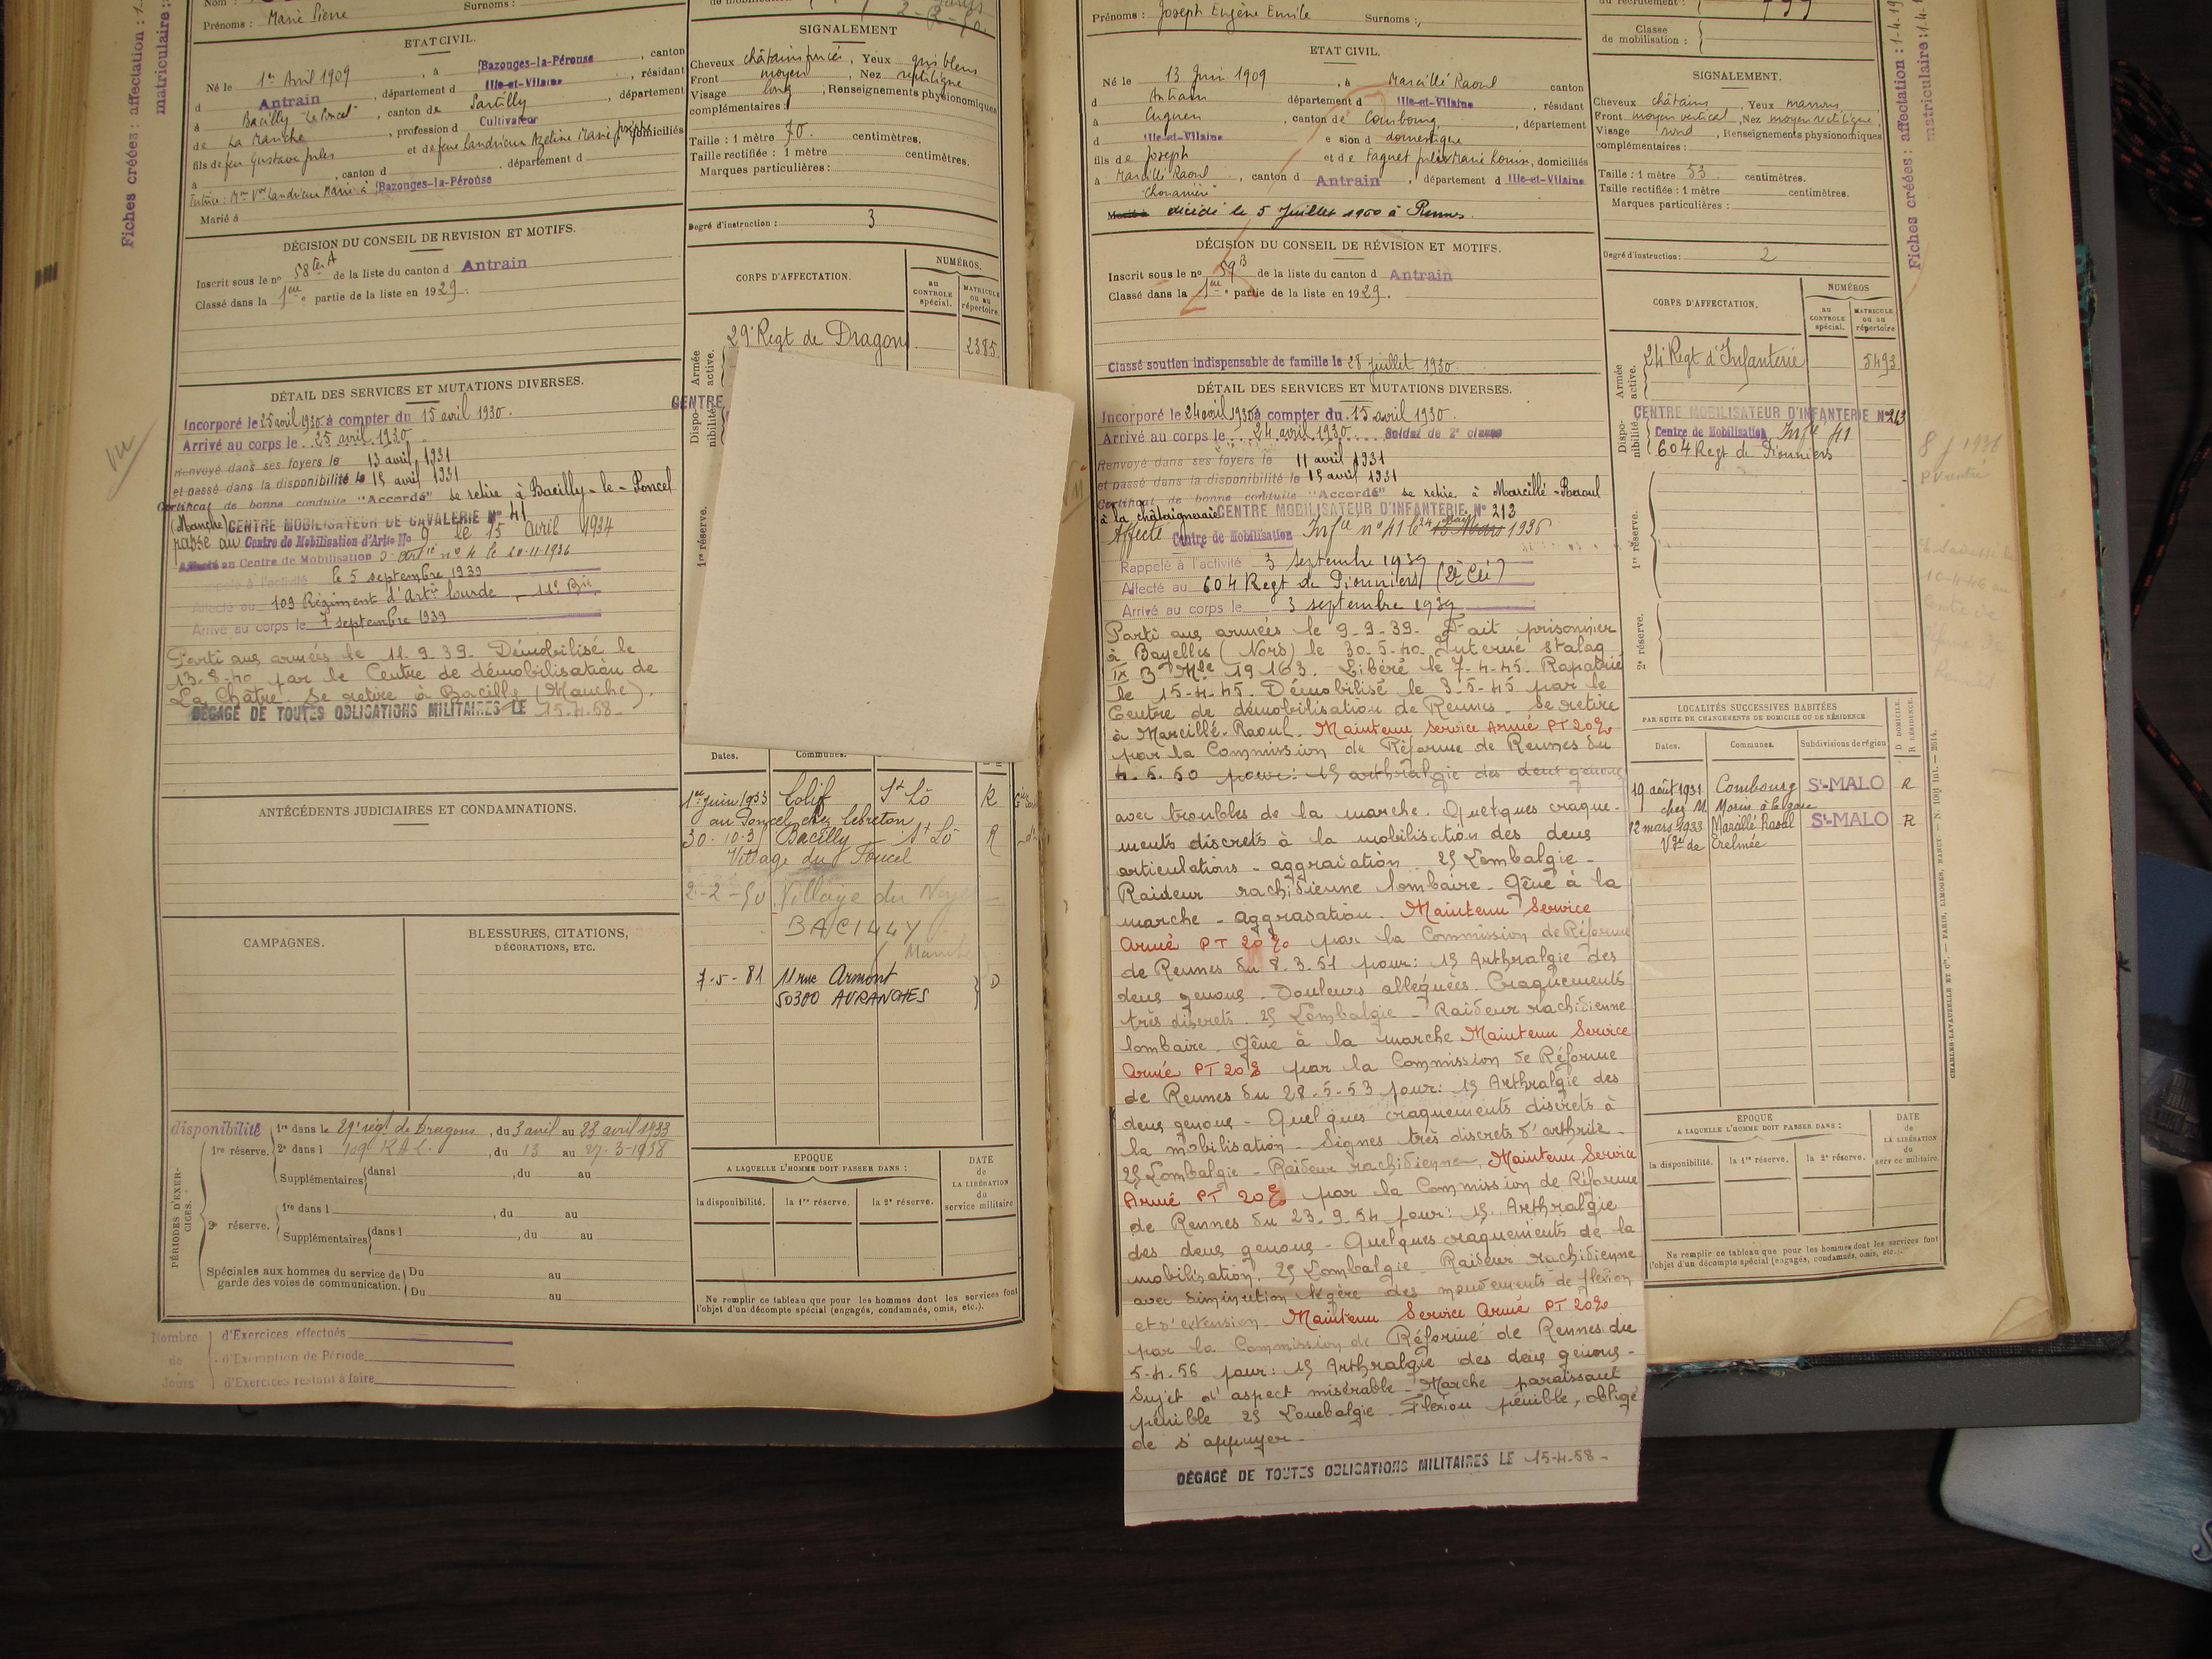 Fiches créées : affectation : 1-
matriculaire :
Nom :
Surnoms :
Prénoms : Marie Pierre
ETAT CIVIL.
Né le 1er Avril 1909, à Bazouges-la-Pérouse, canton
d Antrain, département d Ille-et-Vilaine, résidant
à Bacilly, canton de Sartilly, département
de La Manche, profession d Cultivateur
fils de feu Gustave Jules et de feue Landrieux Azeline Marie Josèphe domiciliés
à , canton d , département d
Tutrice : Mme Vve Landrieux Marie à Bazouges-la-Pérouse
Marié à
DÉCISION DU CONSEIL DE REVISION ET MOTIFS.
Inscrit sous le no 58 ter A de la liste du canton d Antrain
Classé dans la 1ère partie de la liste en 1929.
DÉTAIL DES SERVICES ET MUTATIONS DIVERSES.
Incorporé le 25 avril 1930 à compter du 15 avril 1930.
Arrivé au corps le 25 avril 1930
Renvoyé dans ses foyers le 13 avril 1931
et passé dans la disponibilité le 15 avril 1931
Certificat de bonne conduite "Accordé" se retire à Bacilly-le-Poncel
(Manche) CENTRE MOBILISATEUR DE CAVALERIE No 41
passé au Centre de Mobilisation d'Artie No 9 le 15 avril 1934
Affecté au Centre de Mobilisation d'Artie no 4 le 20-11-1936
Rappelé à l'activité le 5 septembre 1939
Affecté au 109 Régiment d'Artie lourde 11e Bie
Arrivé au corps le 7 septembre 1939
Parti aux armées le 11.9.39. Démobilisé le
13-8-40 par le Centre de démobilisation de
La Châtre. Se retire à Bacilly (Manche).
DÉGAGÉ DE TOUTES OBLIGATIONS MILITAIRES LE 15.4.58
ANTÉCÉDENTS JUDICIAIRES ET CONDAMNATIONS.
CAMPAGNES.
BLESSURES, CITATIONS,
DÉCORATIONS, ETC.
PÉRIODES D'EXERCICES.
disponibilité 1re dans le 29e régt de Dragons, du 3 avril au 23 avril 1933
1re réserve. 2e dans l 109 R.A.L., du 13 au 27-3-1938
Supplémentaires dans l , du au
2e réserve. 1re dans l , du au
Supplémentaires dans l , du au
Spéciales aux hommes du service de
garde des voies de communication. Du au
Du au
Nombre de Jours
d'Exercices effectués
d'Exemption de Période
d'Exercices restant à faire
SIGNALEMENT
Cheveux châtains foncés, Yeux gris bleus
Front moyen, Nez rectiligne
Visage long, Renseignements physionomiques
complémentaires :
Taille : 1 mètre 70 centimètres.
Taille rectifiée : 1 mètre centimètres.
Marques particulières :
Degré d'instruction : 3
CORPS D'AFFECTATION.
NUMÉROS.
AU CONTROLE spécial.
MATRICULE ou au répertoire.
Armée active.
29e Regt de Dragons 2385
Disponibilité.
CENTRE
1re réserve.
Dates. Communes.
1er juin 1933 Lolif St Lô R
au Poncel chez Lebreton
30-10-3 Bacilly St Lô R
Village du Poncel
2-2-50 Village du
BACILLY
Manche
7-5-81 11 rue Armont D
50300 AVRANCHES
EPOQUE
A LAQUELLE L'HOMME DOIT PASSER DANS :
la disponibilité. la 1re réserve. la 2e réserve.
DATE
de
LA LIBÉRATION
du
service militaire
Ne remplir ce tableau que pour les hommes dont les services font
l'objet d'un décompte spécial (engagés, condamnés, omis, etc.).
Prénoms : Joseph Eugène Emile Surnoms :
ETAT CIVIL.
Né le 13 Juin 1909, à Marcillé Raoul canton
d Antrain département d Ille-et-Vilaine, résidant
à Cuguen, canton de Combourg, département
d Ille-et-Vilaine e sion d domestique
fils de Joseph et de Faguet Julie Marie Louise, domiciliés
à Marcillé Raoul, canton d Antrain, département d Ille-et-Vilaine
Marié à décédé le 5 Juillet 1960 à Rennes.
DÉCISION DU CONSEIL DE RÉVISION ET MOTIFS.
Inscrit sous le no 59 B de la liste du canton d Antrain
Classé dans la 1ère partie de la liste en 1929.
Classé soutien indispensable de famille le 28 juillet 1930
DÉTAIL DES SERVICES ET MUTATIONS DIVERSES.
Incorporé le 24 avril 1930 à compter du 15 avril 1930.
Arrivé au corps le 24 avril 1930 Soldat de 2e classe
Renvoyé dans ses foyers le 11 avril 1931
et passé dans la disponibilité le 15 avril 1931
Certificat de bonne conduite "Accordé" se retire à Marcillé-Raoul
à la châtaigneraie CENTRE MOBILISATEUR D'INFANTERIE No 213
Affecté Centre de Mobilisation Infie no 41 le 24 Mai 15 Mars 1936
Rappelé à l'activité 3 septembre 1939
Affecté au 604 Regt de Pionniers (2e Cie)
Arrivé au corps le 3 septembre 1939
Parti aux armées le 9-9-39. Fait prisonnier
à Bayelles (Nors) le 30-5-40. Interné stalag
IX B Mle 19163. Libéré le 7-4-45. Rapatrié
le 15-4-45. Démobilisé le 3-5-45 par le
Centre de démobilisation de Rennes. Se retire
à Marcillé-Raoul. Maintenu Service Armé PT 20%
par la Commission de Réforme de Rennes du
4.5.50 pour: 1) arthralgie des deux genoux
avec troubles de la marche. Quelques craque-
ments discrets à la mobilisation des deux
articulations - aggravation 2) Lombalgie -
Raideur rachidienne lombaire - Gêne à la
marche - aggravation. Maintenu Service
Armé PT 20% par la Commission de Réforme
de Rennes du 8.3.51 pour: 1) Arthralgie des
deux genoux - Douleurs alléguées. Craquements
très discrets. 2) Lombalgie - Raideur rachidienne
lombaire. Gêne à la marche Maintenu Service
Armé PT 20% par la Commission de Réforme
de Rennes du 28-5-53 pour: 1) Arthralgie des
deux genoux - Quelques craquements discrets à
la mobilisation - Signes très discrets d'arthrite -
2) Lombalgie - Raideur rachidienne, Maintenu Service
Armé PT 20% par la Commission de Réforme
de Rennes du 23.9.54 pour: 1) Arthralgie
des deux genoux - Quelques craquements de la
mobilisation. 2) Lombalgie - Raideur rachidienne
avec diminution légère des mouvements de flexion
et d'extension - Maintenu Service Armé PT 20%
par la Commission de Réforme de Rennes du
5-4-56 pour: 1) Arthralgie des deux genoux -
Sujet d'aspect misérable - Marche paraissant
pénible 2) Lombalgie - Flexion pénible, obligé
de s'appuyer -
DÉGAGÉ DE TOUTES OBLIGATIONS MILITAIRES LE 15-4-58 -
du recrutement : 799
Classe
de mobilisation :
SIGNALEMENT.
Cheveux châtains, Yeux marrons,
Front moyen vertical, Nez moyen rectiligne,
Visage rond, Renseignements physionomiques
complémentaires :
Taille : 1 mètre 53 centimètres.
Taille rectifiée : 1 mètre centimètres.
Marques particulières :
Degré d'instruction : 2
CORPS D'AFFECTATION.
NUMÉROS
AU CONTROLE spécial.
MATRICULE ou au répertoire
Armée active.
24e Regt d'Infanterie 5493
CENTRE MOBILISATEUR D'INFANTERIE No 213
Disponibilité.
Centre de Mobilisation Infie 41
604 Regt de Pionniers
1re réserve.
2e réserve.
LOCALITÉS SUCCESSIVES HABITÉES
PAR SUITE DE CHANGEMENTS DE DOMICILE OU DE RÉSIDENCE.
Dates. Communes. Subdivisions de région D DOMICILE. R RÉSIDENCE.
19 août 1931 Combourg St-MALO R
chez M. Morin à la gare
12 mars 1933 Marcillé Raoul St-MALO R
Vge de
EPOQUE
A LAQUELLE L'HOMME DOIT PASSER DANS :
la disponibilité. la 1re réserve. la 2e réserve.
DATE
de
LA LIBÉRATION
du
service militaire.
Ne remplir ce tableau que pour les hommes dont les services font
l'objet d'un décompte spécial (engagés, condamnés, omis, etc.).
CHARLES-LAVAUZELLE ET Cie. — PARIS, LIMOGES, NANCY — N. 1001 int. — 2514.
Fiches créées : affectation : 1-4-19
matriculaire : 1-4-1
10-4-46 au